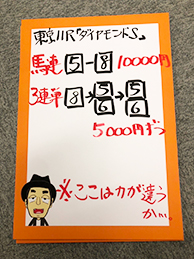 東京11R『ダイヤモンドS』
馬連 5-8 10000円
3連単 8→5 6→5 6
5000円ずつ
※ここは力が違う
かm…